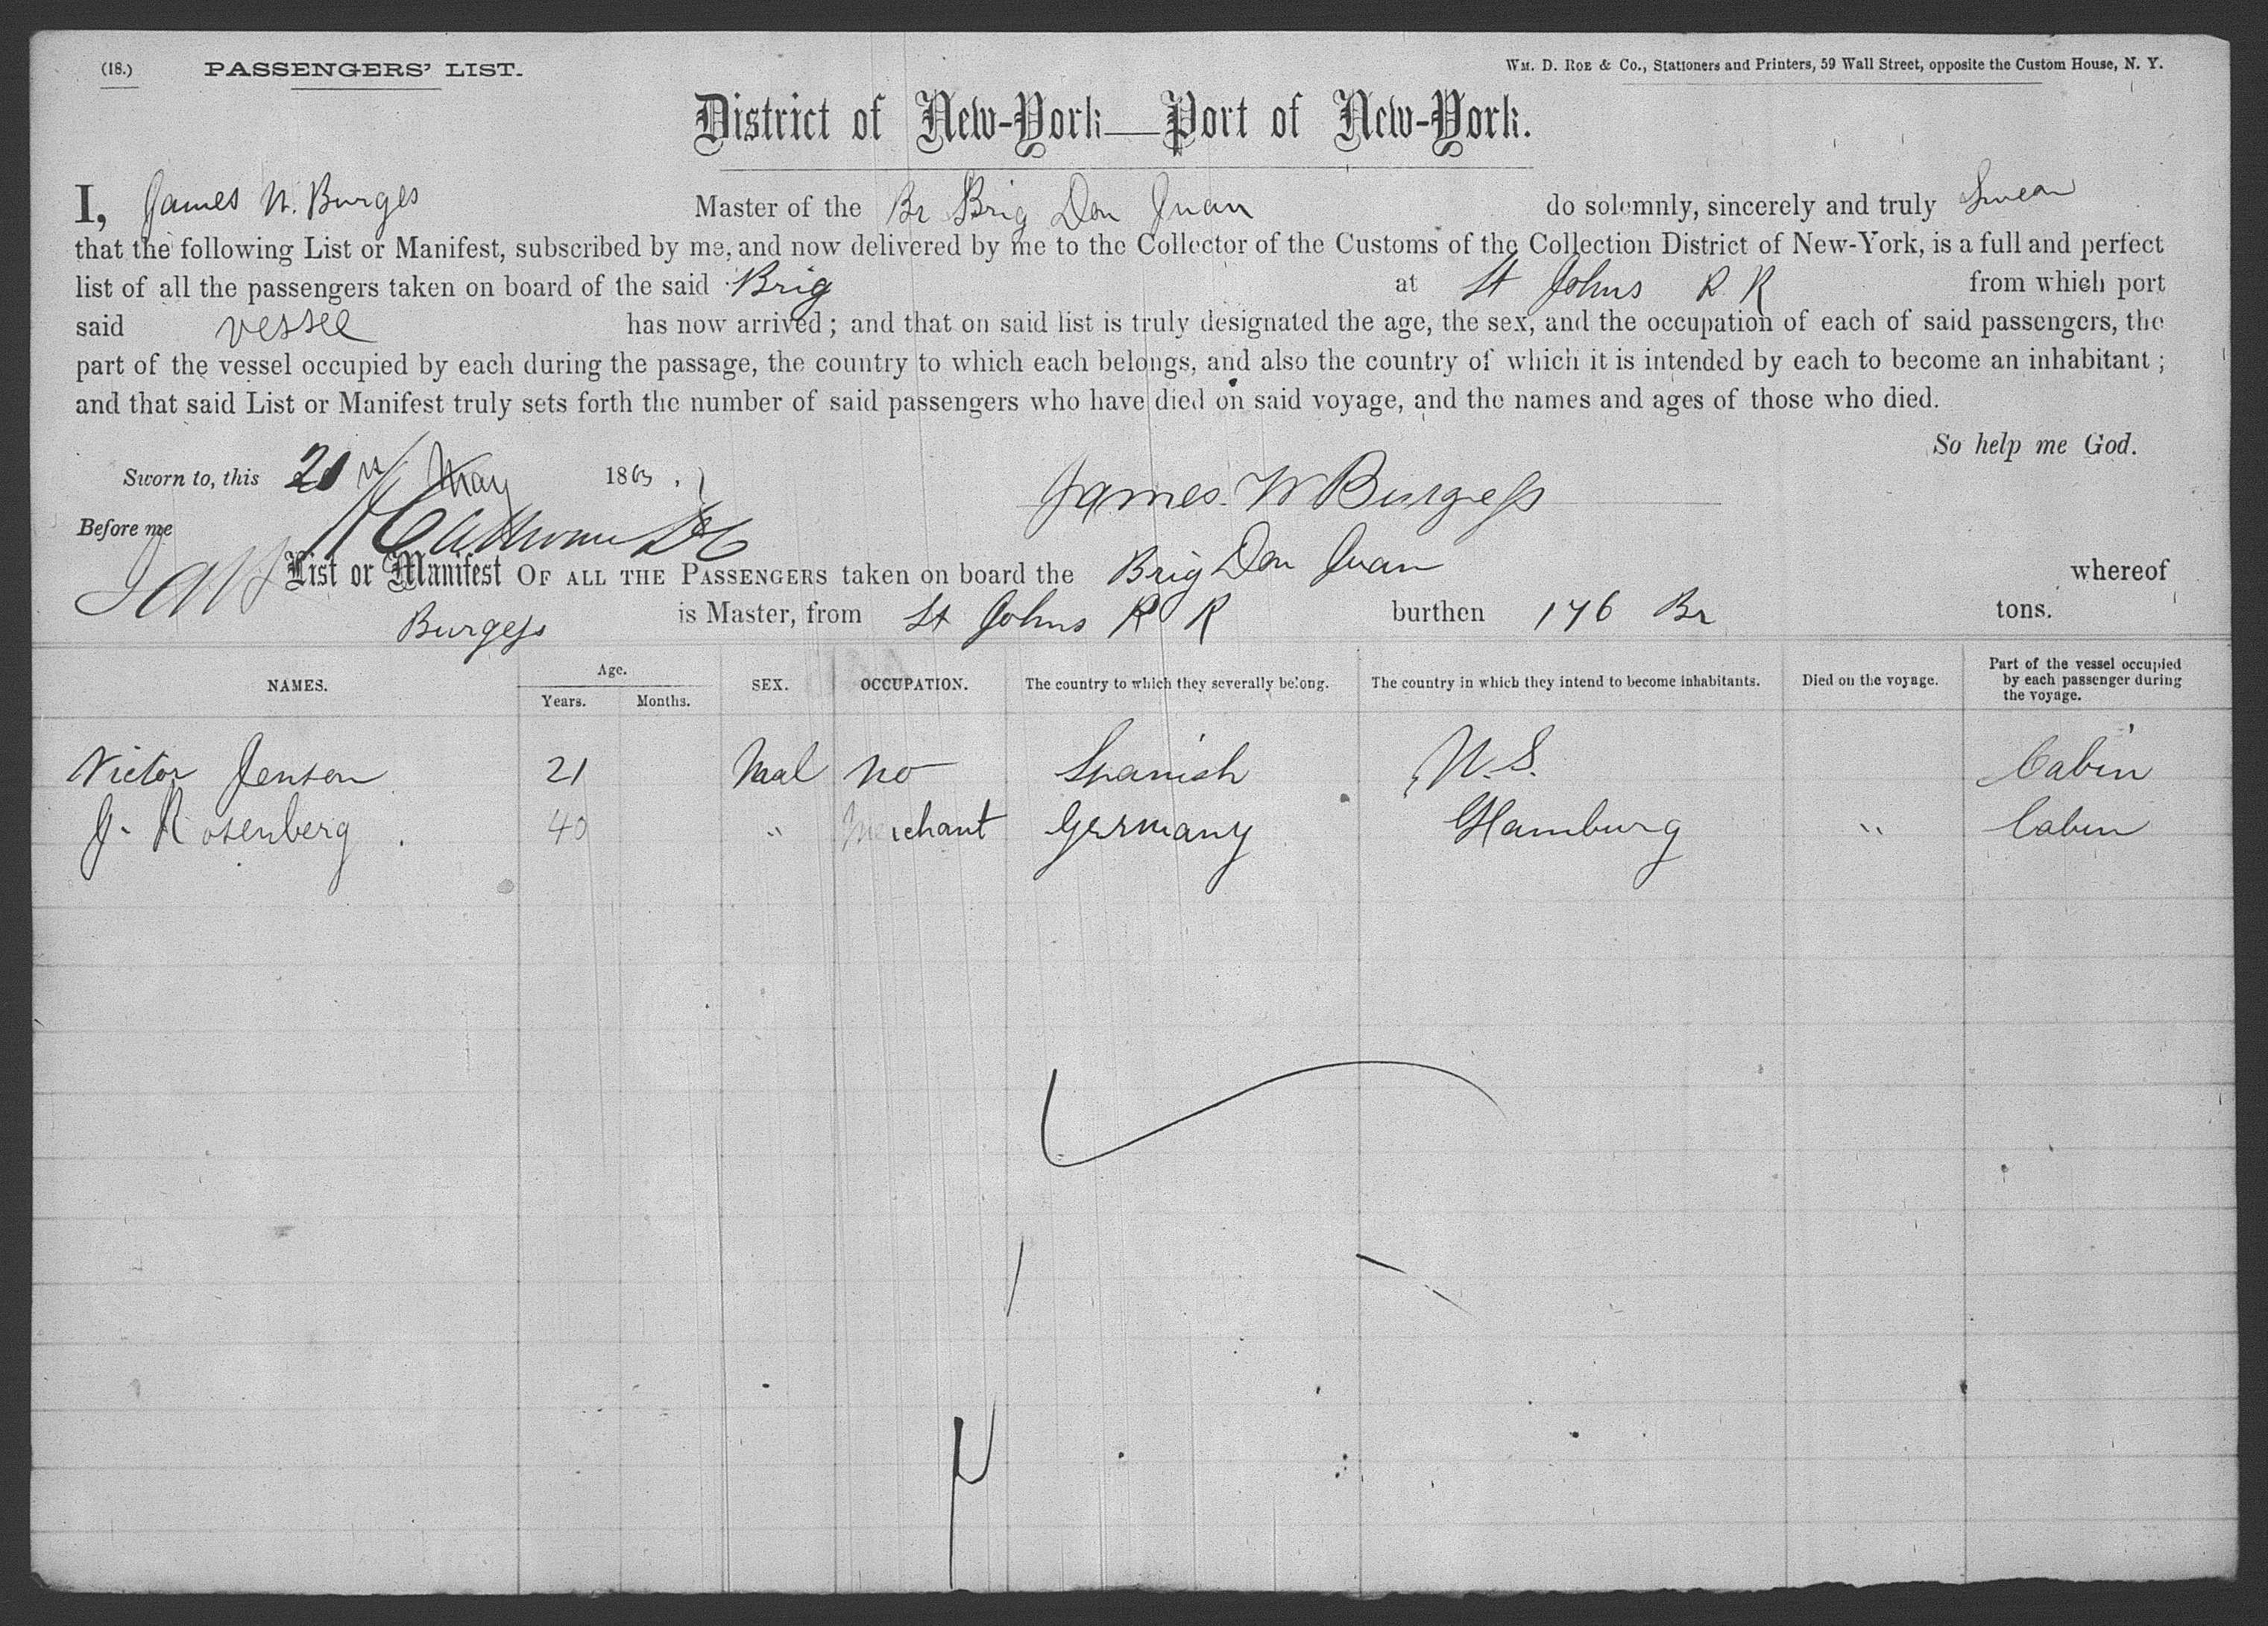 (18.) PASSENGERS' LIST.
WM. D. ROE & CO., Stationers and Printers, 59 Wall Street, opposite the Custom House, N. Y.
District of New-York—Port of New-York.
I, James W. Burges Master of the Br Brig Don Juan do solemnly, sincerely and truly Swear
that the following List or Manifest, subscribed by me, and now delivered by me to the Collector of the Customs of the Collection District of New-York, is a full and perfect
list of all the passengers taken on board of the said Brig at St Johns P. R from which port
said vessel has now arrived ; and that on said list is truly designated the age, the sex, and the occupation of each of said passengers, the
part of the vessel occupied by each during the passage, the country to which each belongs, and also the country of which it is intended by each to become an inhabitant ;
and that said List or Manifest truly sets forth the number of said passengers who have died on said voyage, and the names and ages of those who died.
So help me God.
Sworn to, this 21st May 1863.
James W Burgess
Before me
List or Manifest OF ALL THE PASSENGERS taken on board the Brig Don Juan whereof
Burgess is Master, from St Johns P R burthen 176 Br tons.
NAMES. Age. Years. Months. SEX. OCCUPATION. The country to which they severally belong. The country in which they intend to become inhabitants. Died on the voyage. Part of the vessel occupied by each passenger during the voyage.
Victor Jensen 21 Mal no Spanish U.S. Cabin
J. Rosenberg 40 " Merchant Germany Hamburg " Cabin